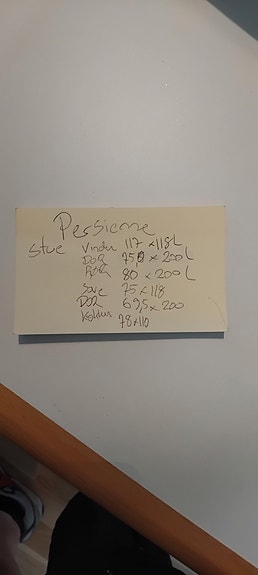 Persienne
stue Vindu 117 x 118 L
DØR 75,5 x 200 L
80 x 200 L
Sove 75 x 118
DØR 69,5 x 200
78 x 110